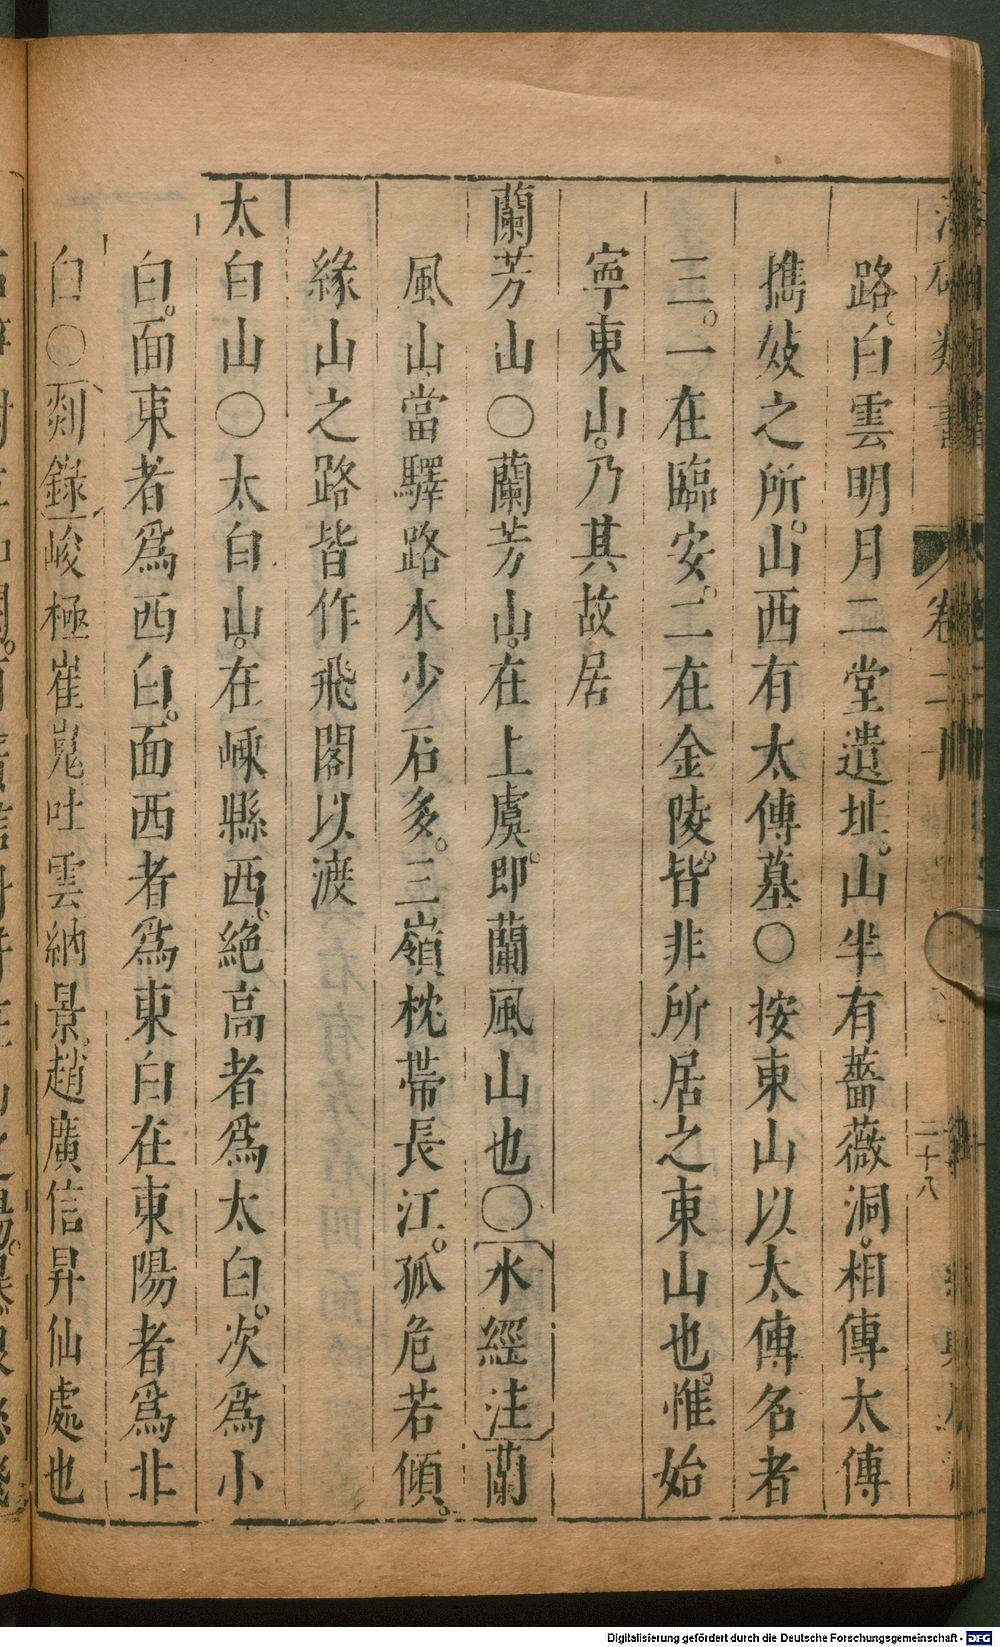 路。白雲明月二堂遺址。山半有薔薇洞。相傳太傅
攜妓之所。山西有太傅墓〇按東山以太傅名者
三。一在臨安。二在金陵。皆非所居之東山也。惟始
寧東山。乃其故居
蘭芳山〇蘭芳山。在上虞。即蘭風山也〇水經注蘭
風山當驛路水少石多。三嶺枕帶長江。孤危若傾。
緣山之路皆作飛閣以渡
太白山〇太白山。在嵊縣西。絶高者爲太白。次爲小
白。面東者爲西白。面西者爲東白在東陽者爲北
白〇剡錄峻極崔嵬吐雲納景。趙廣信昇仙處也
類書
卷二十
二十八
Digitalisierung gefördert durch die Deutsche Forschungsgemeinschaft - DFG